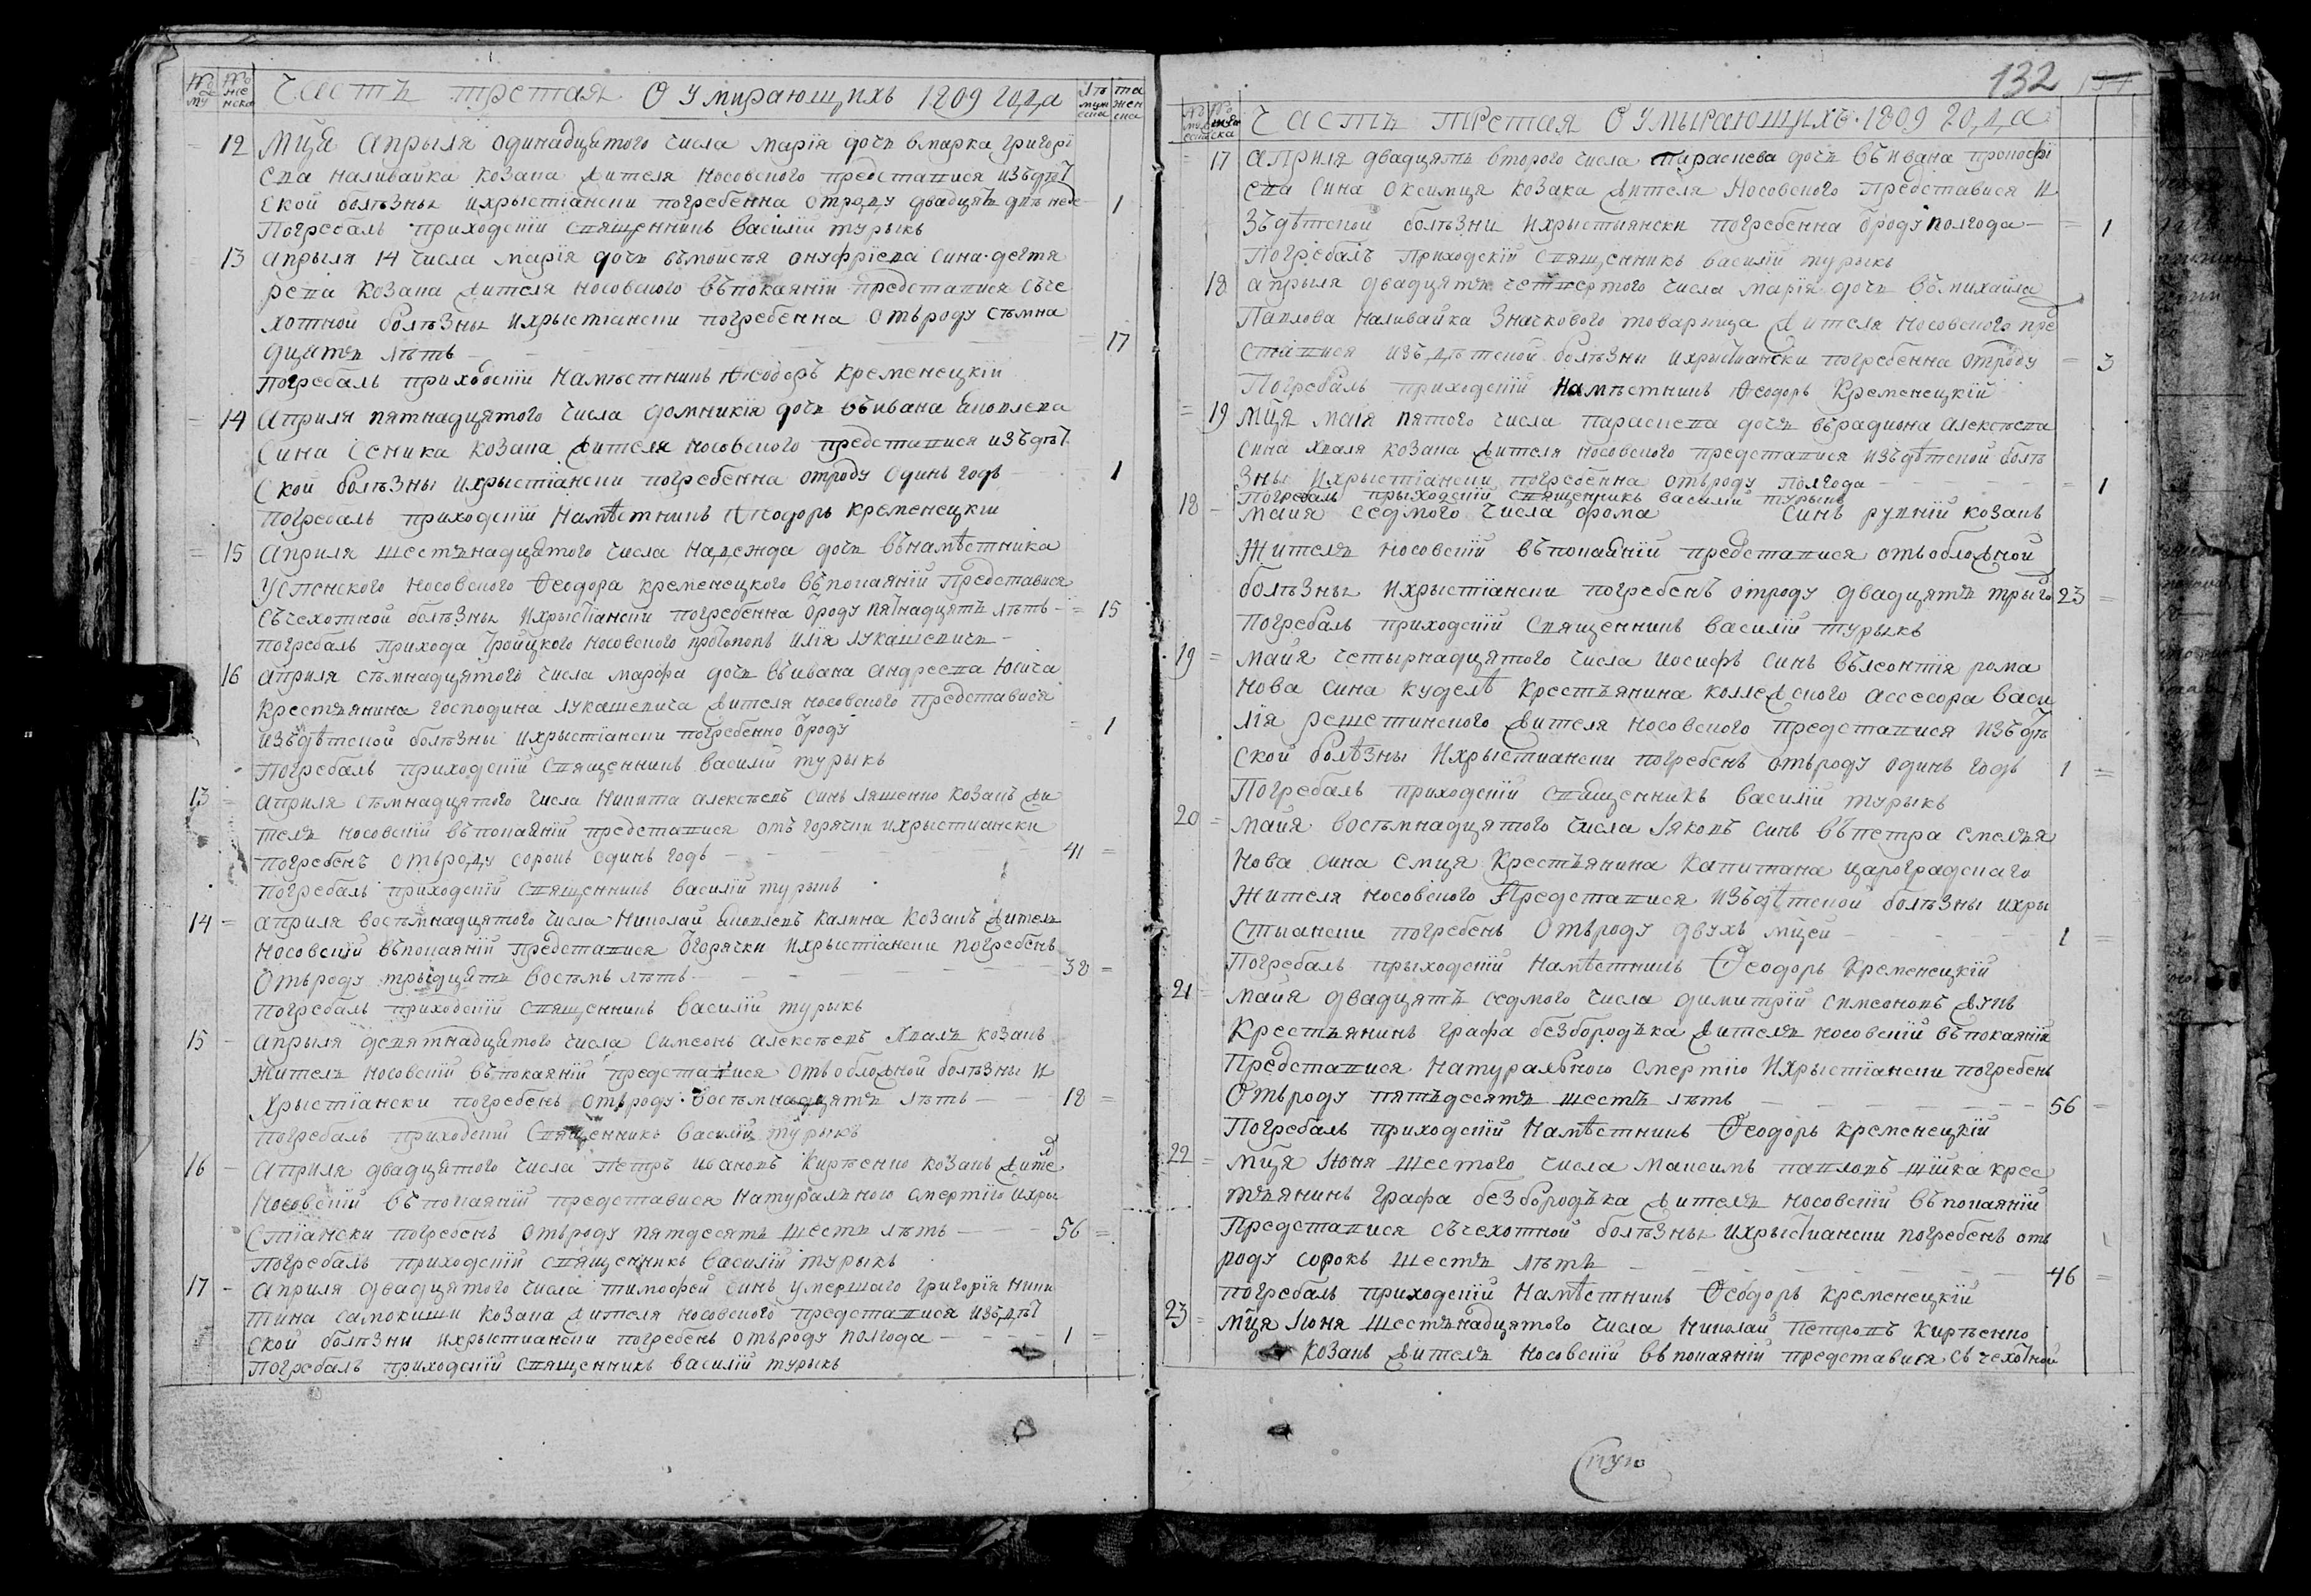 № му
№ женска
Часть третая О умирающихъ 1809 года
Лѣта муж еска
жен ска
12 Мця Апрыля одинадцятого числа Марія дочь вмарка Григорі
ева Наливайка козака жителя Носовского представися изъдѣт
ской болѣзны ихрыстіански погребенна отроду двадцять
1
Погребалъ приходскій священникъ Василій Турыкъ
13 Апрыля 14 числа Марія дочь въмойсея Онуфріева сина дегтя
рева козака жителя Носовского въпокаяніи представися съче
хотной болѣзны ихрыстіански погребенна отъроду сѣмна
дцять лѣтъ
17
погребалъ приходскій Намѣстникъ Ѳеодоръ Кременецкій
14 Априля пятнадцятого числа Домникія дочь въивана Яковлева
Сина Сеника козака жителя Носовского представися изъдѣт
ской болѣзны ихрыстіански погребенна отроду одинъ годъ
1
погребалъ приходскій Намѣстникъ Ѳеодоръ Кременецкій
15 Априля шестьнадцятого числа Надежда дочь вънамѣстника
Успенского Носовского Ѳеодора Кременецкого въпокаяніи представися
съчехотной болѣзны ихрыстіански погребенна ѿроду пятнадцять лѣтъ
15
погребалъ прихода Тройцкого Носовского протопопъ Илія Лукашевичъ
16 Априля сѣмнадцятого числа Марфа дочь въивана Андреева Юсича
Крестьянина господина Лукашевича жителя Носовского представися
изъдѣтской болѣзны ихрыстіански погребенно ѿроду
1
Погребалъ приходскій священникъ Василій Турыкъ
13 Априля сѣмнадцятого числа Никита Алексѣевъ синъ Ляшенко козакъ жи
тель Носовскій въпокаяніи представися отъ горячки ихрыстиански
погребенъ отъроду сорокъ одинъ годъ
41
погребалъ приходскій священникъ Василій Турыкъ
14 Априля восѣмнадцятого числа Николай Яковлевъ Калина козакъ житель
Носовскій въпокаяніи представися ѿгорячки ихрыстіански погребенъ
отъроду трыдцять восѣмъ лѣтъ
38
погребалъ приходскій священникъ Василій Турыкъ
15 Апрыля девятнадцятого числа Симеонъ Алексѣевъ Хваль козакъ
Житель Носовскій въпокаяніи представися отъобложной болѣзны и
хрыстіански погребенъ отъроду восѣмнадцять лѣтъ
18
погребалъ приходскій священникъ Василій Турыкъ
16 Априля двадцятого числа Петръ Ивановъ Кирѣенко козакъ жите
Носовскій въпокаяніи представися натуральною смертію ихры
стіански погребенъ отъроду пятдесять шесть лѣтъ
56
погребалъ приходскій священникъ Василій Турыкъ
17 Априля двадцятого числа Тимофей синъ умершаго Григорія Ники
тина Самокиши козака жителя Носовского представися изъдѣт
ской болѣзни ихрыстиански погребенъ отъроду полгода
1
Погребалъ приходскій священникъ Василій Турыкъ
132
Часть третая О умырающихъ 1809 года
17 Априля двадцять второго числа Параскева дочь въивана Прокофі
ева сина козака жителя Носовского представися и
зъдѣтской болѣзни ихрыстыянски погребенна ѿроду полгода
1
Погребалъ приходскій священникъ Василій Турыкъ
18 Апрыля двадцять четвертого числа Марія дочь въмихайла
Павлова Наливайка Значкового товарища жителя Носовского пре
ставися изъдѣтской болѣзни ихрыстиански погребенна отроду
3
Погребалъ приходскій Намѣстникъ Ѳеодоръ Кременецкій
19 Мця Маія пятого числа Параскева дочь върадиона Алексѣева
сина Хваля козака жителя Носовского представися изъдѣтской болѣ
зны ихрыстіански погребенна отъроду полгода
1
Погребалъ прыходскій священникъ Василій Турыкъ
18 Маия седмого числа Фома синъ рудній козакъ
Житель Носовскій въпокаяніи представися отъобложной
болѣзны ихрыстіански погребенъ отроду двадцять трыго
23
Погребалъ приходскій Священникъ Василій Турыкъ
19 Майя четырнадцятого числа Иосифъ синъ вълеонтія Рома
нова сина Куделѣ Крестьянина коллежского ассесора Васи
лія Решетинского жителя Носовского представися изъдѣт
ской болѣзны ихрыстиански погребенъ отъроду одинъ годъ
1
Погребалъ приходскій священникъ Василій Турыкъ
20 Майя восѣмнадцятого числа Іяковъ синъ въпетра Емелья
нова сина Емця Крестьянина Капитана Цароградскаго
Жителя Носовского представися изъдѣтской болѣзны ихры
стыански погребенъ отъроду двухъ мцей
1
Погребалъ прыходскій Намѣстникъ Ѳеодоръ Кременецкій
21 Майя двадцять седмого числа Димитрій Симеоновъ Жукъ
Крестьянинъ графа Безбородька житель Носовскій въпокаяніи
Представися Натуральною смертію ихрыстіански погребенъ
отъроду пятьдесять шесть лѣтъ
56
Погребалъ приходскій Намѣстникъ Ѳеодоръ Кременецкій
22 Мця Іюня шестого числа Максимъ Павловъ Шійка крес
тьянинъ графа Безбородька житель Носовскій въпокаяніи
Представися съчехотной болѣзны ихрыстиански погребенъ отъ
роду сорокъ шесть лѣтъ
46
погребалъ приходскій Намѣстникъ Ѳеодоръ Кременецкій
23 Мця Іюня шестьнадцятого числа Николай Петровъ Кирѣенко
козакъ житель Носовскій въпокаяніи представися съчехотной